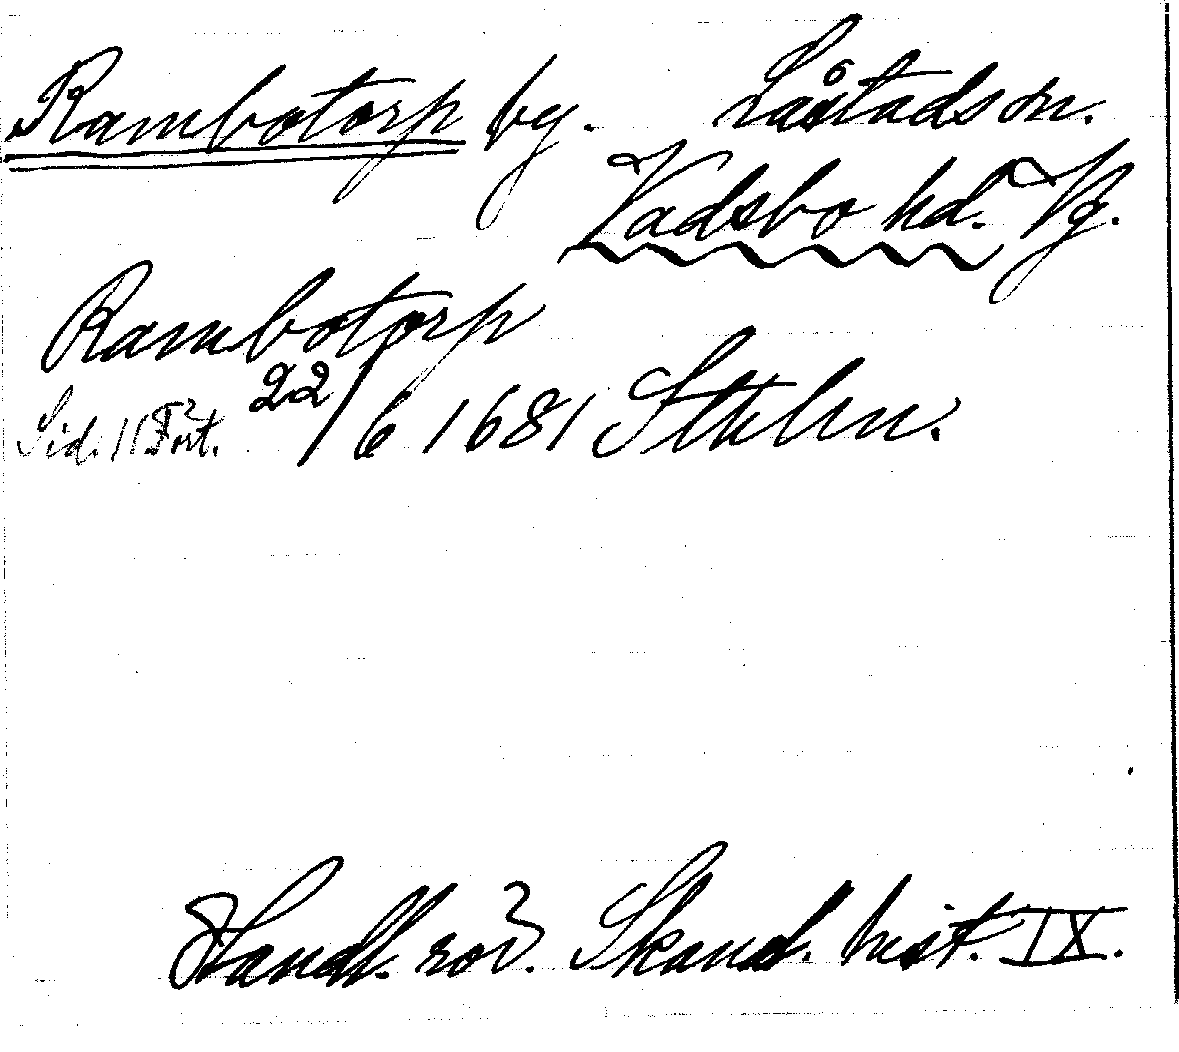 Rambotorp by. Låstads sn.
Vadsbo hd. Vg.
Rambotorp
Sid. 11 Fört. 22/6 1681 Sthlm.
Handl. rör. Skand. hist. IX.